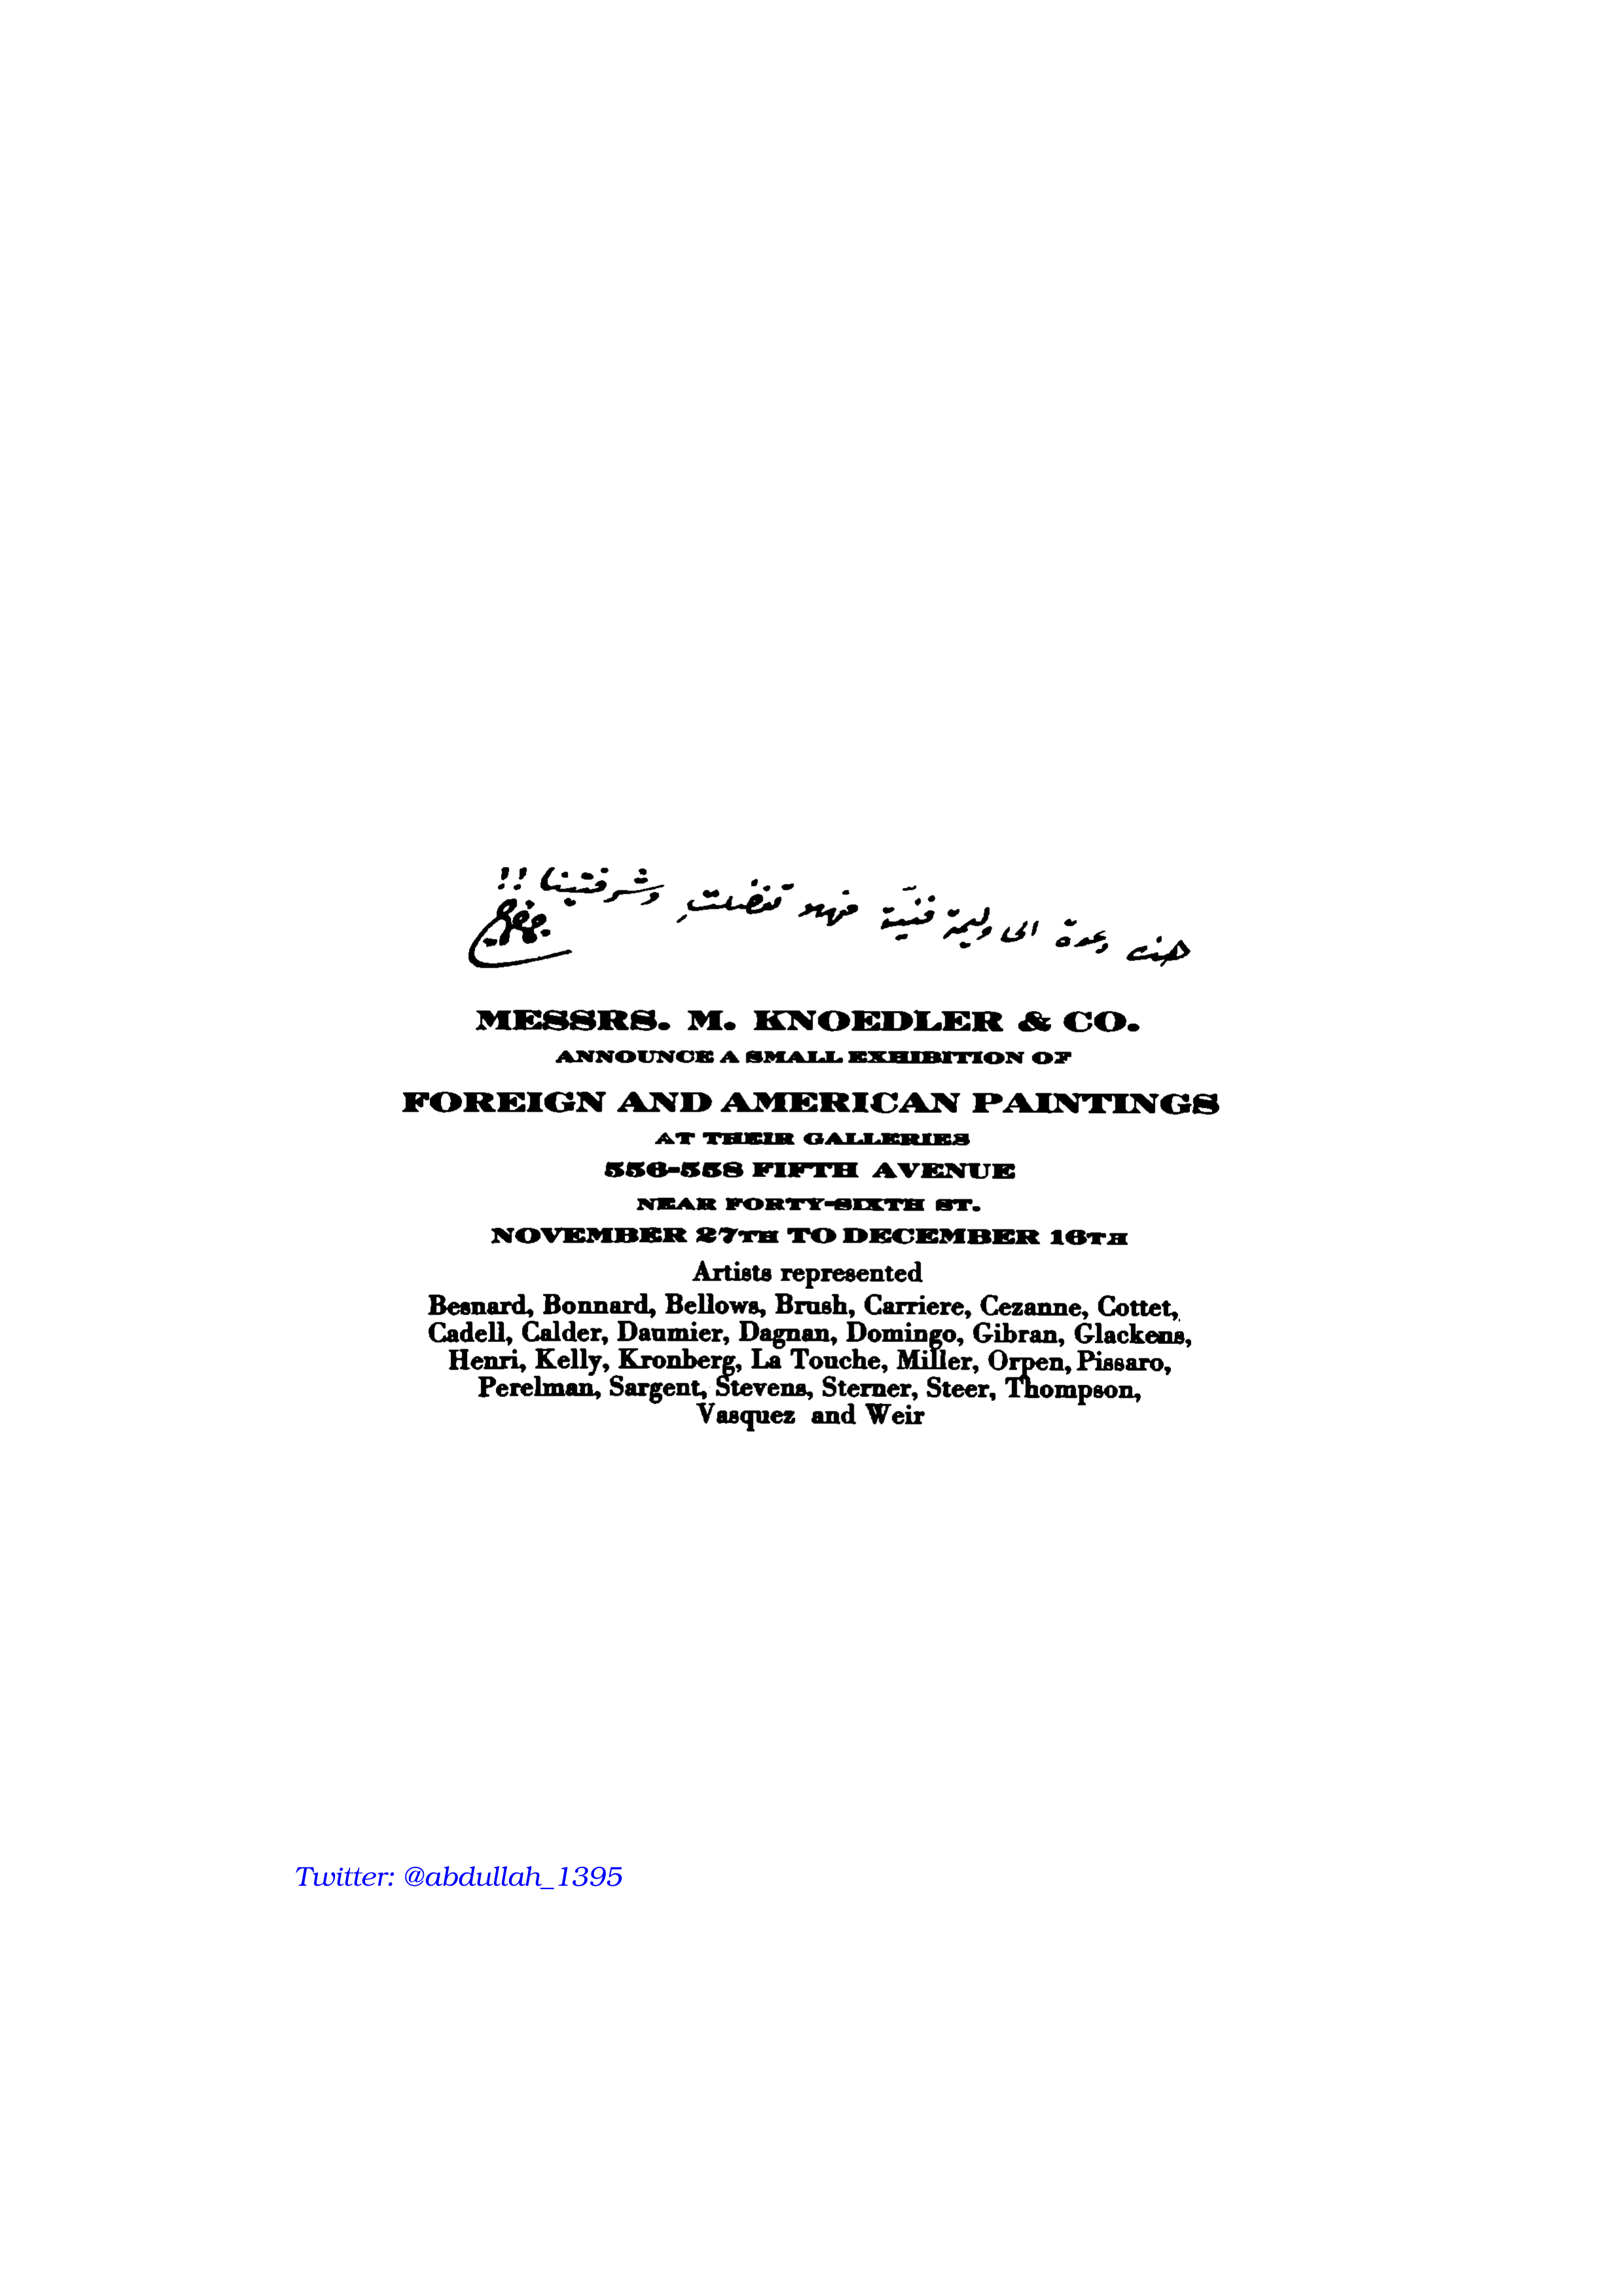 هذه دعوة الى وليمة فنيّة فهلا تفضلتِ وشرفتينا !!
جبران
MESSRS. M. KNOEDLER & CO.
ANNOUNCE A SMALL EXHIBITION OF
FOREIGN AND AMERICAN PAINTINGS
AT THEIR GALLERIES
556-558 FIFTH AVENUE
NEAR FORTY-SIXTH ST.
NOVEMBER 27TH TO DECEMBER 16TH
Artists represented
Besnard, Bonnard, Bellows, Brush, Carriere, Cezanne, Cottet,
Cadell, Calder, Daumier, Dagnan, Domingo, Gibran, Glackens,
Henri, Kelly, Kronberg, La Touche, Miller, Orpen, Pissaro,
Perelman, Sargent, Stevens, Sterner, Steer, Thompson,
Vasquez and Weir
Twitter: @abdullah_1395